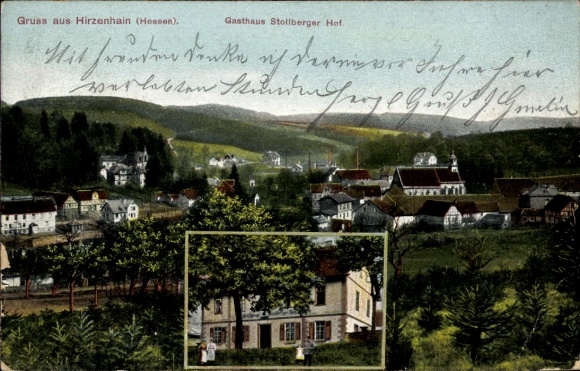 Gruss aus Hirzenhain (Hessen). Gasthaus Stollberger Hof.
Mit Freuden denke ich der im vor. Jahre hier
verlebten Stunden herzl. Gruß J. Gmelin